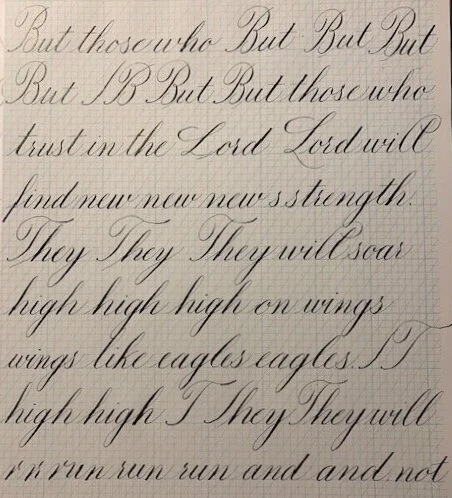 But those who But But But
But / B But But those who
trust in the Lord Lord will
find new new new s strength.
They They They will soar
high high high on wings
wings like eagles eagles. / T
high high T They They will
r r run run run and and not